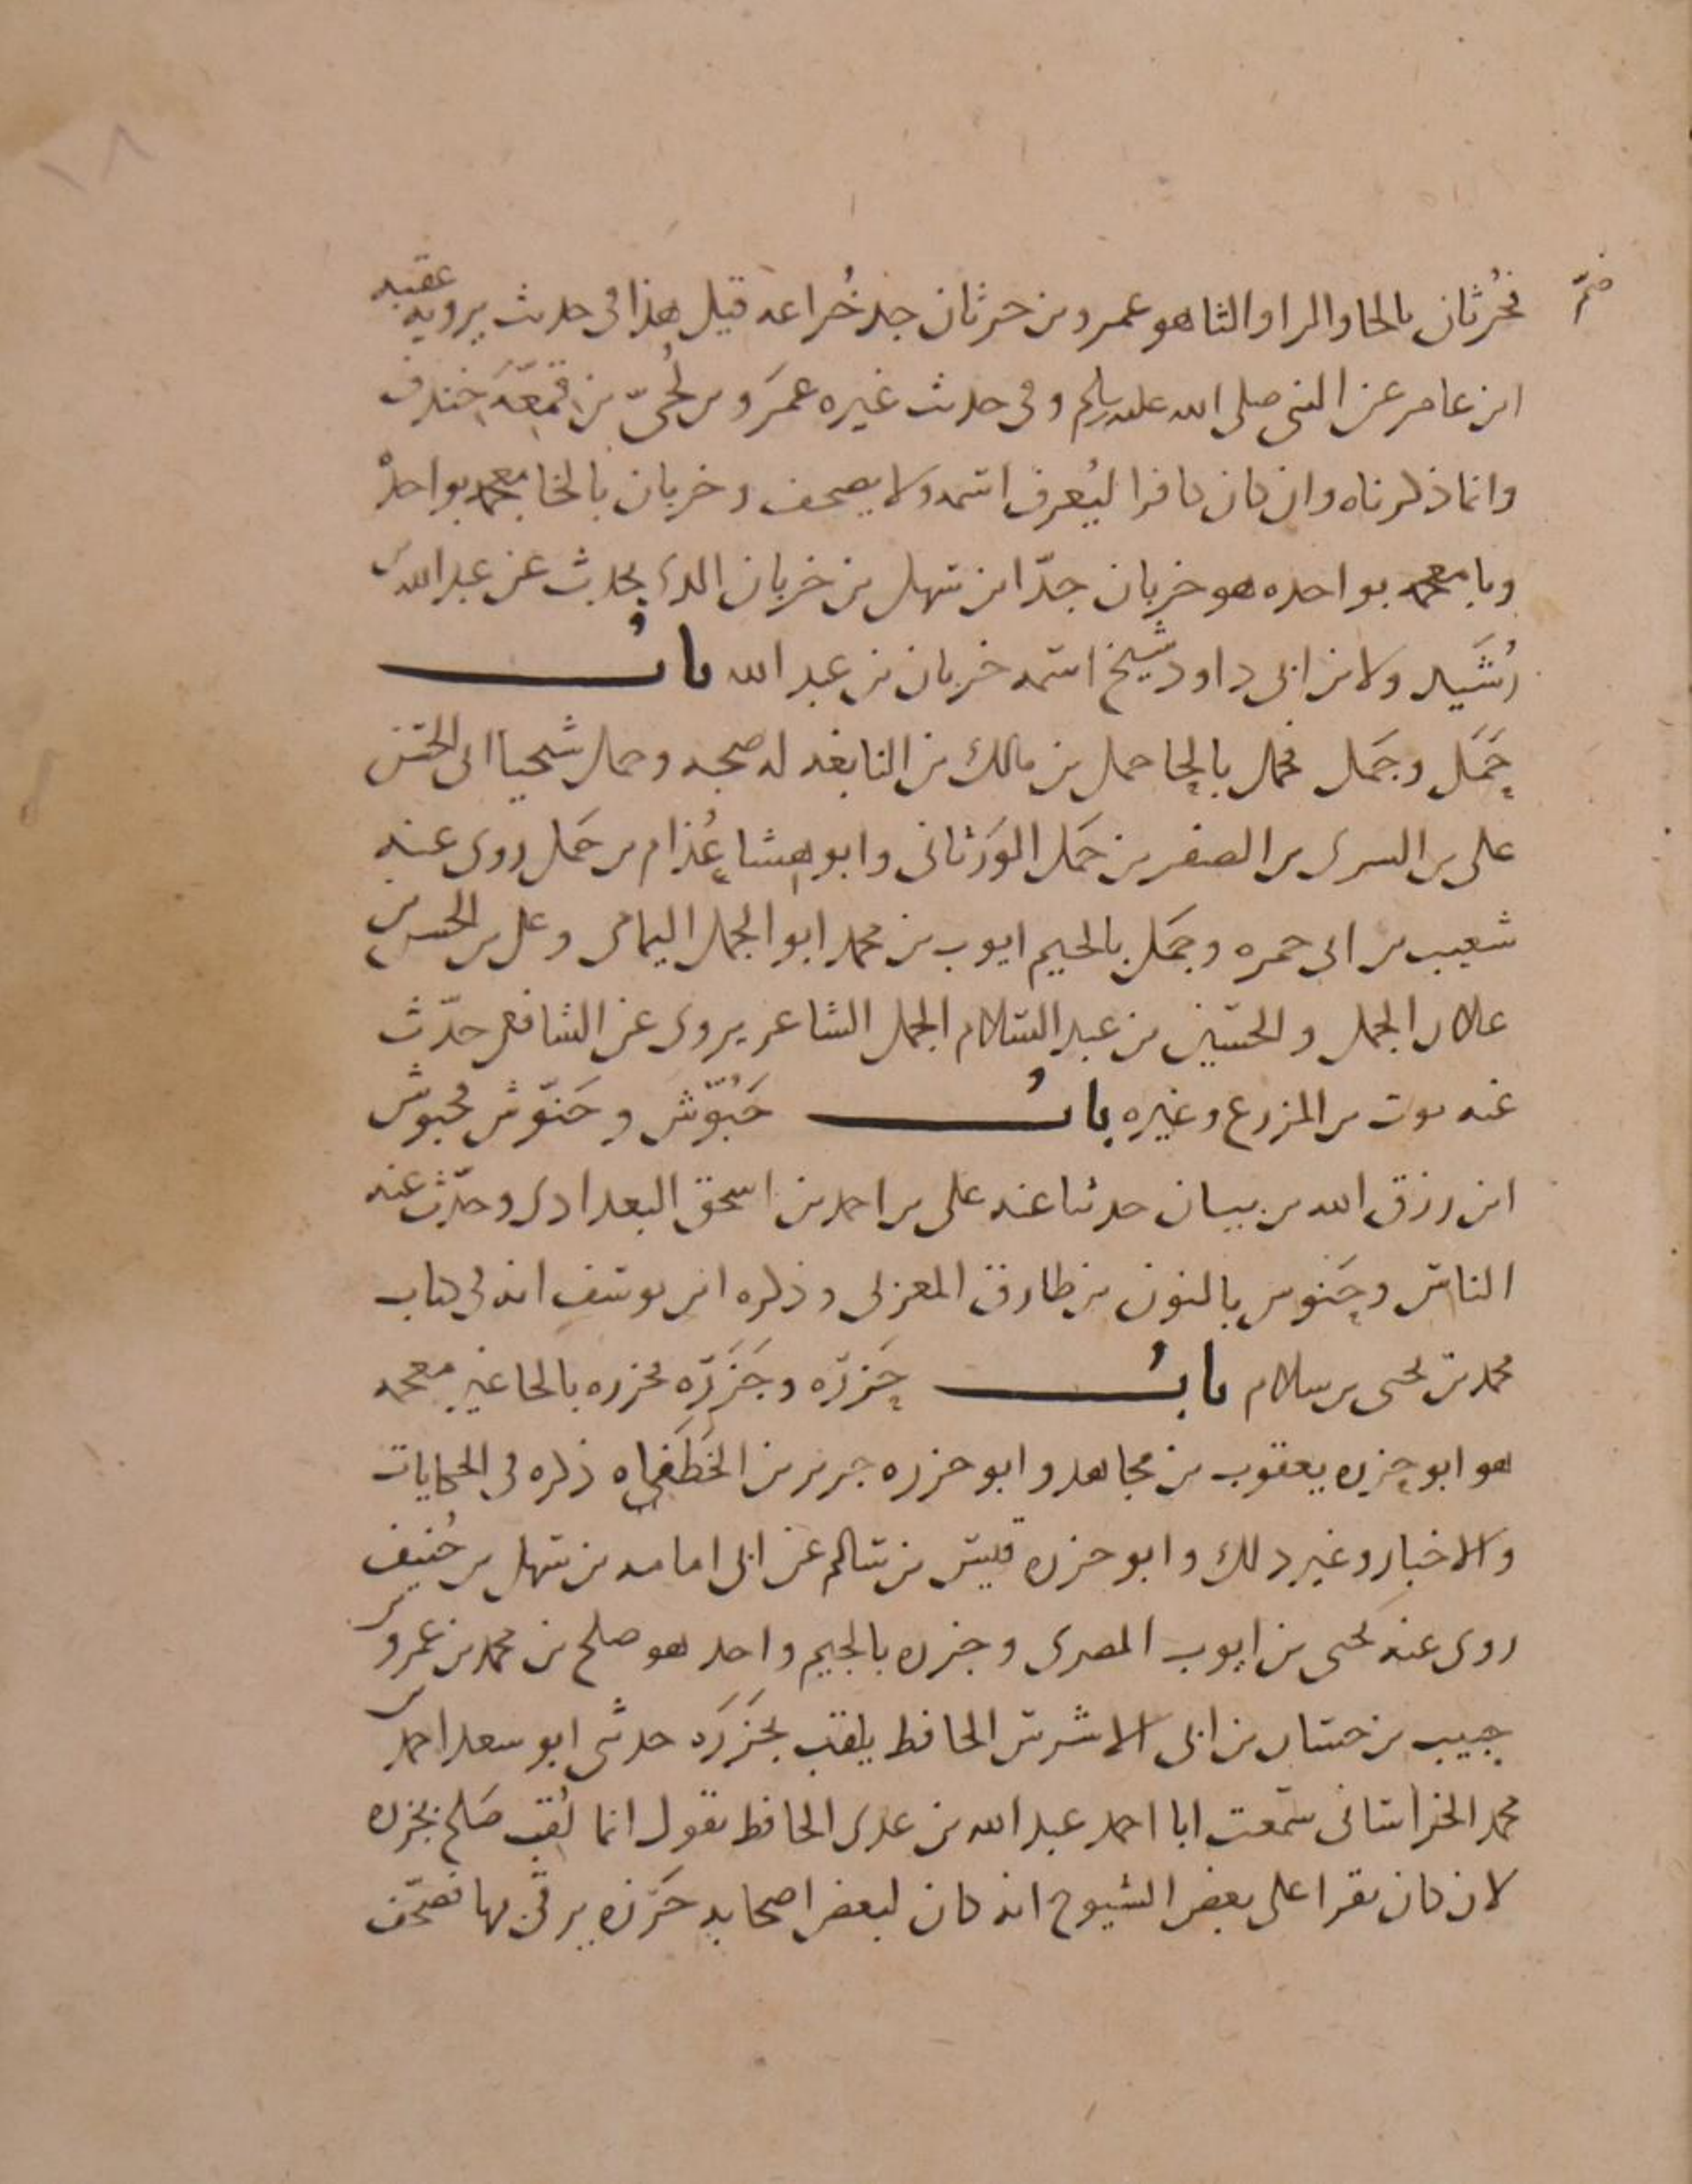 فحُرثان بالحا والرا والثا هو عمرو بن حرثان جد خُزاعه قيل هذا في حديث يرويه عقبه
ابن عامر عن النبي صلى الله عليه وسلم وفي حديث غيره عمَرو بن لُحيّ بن قَمعَّه خندف
وانما ذكرناه وان كان كافرا ليُعرف اسمه ولا يصحف وخربان بالخا معجمه بواحده
وبا معجمه بواحده هو خربان جدّ ابن سهل بن خربان الذي يحدث عن عبد الله بن
رُشَيد ولابن ابي داود شيخ اسمه خربان بن عبد الله بابُ
حَمَل وجَمَل فحمل بالحا حمل بن مالك بن النابغه له صحبه وحمل شيخنا ابي الحسن
على بن السرى بن الصقر بن حَمَل الوَرَثانى وابو هشا عُذام بن حَمَل روى عنه
شعيب بن ابى حمزه وجَمَل بالجيم ايوب بن محمد ابو الجمل اليمامى وعلى بن الحسن بن
علان الجمل والحسين بن عبد السلام الجمل الشاعر يروى عن الشافعى حدّث
عنه يموت بن المزرع وغيره بابُ حَبُّوش وحَنّوش فحبوش
ابن رزق الله بن بيان حدثنا عنه على بن احمد بن اسحق البغدادى وحدّث عنه
الناس وحَنوش بالنون بن طارق المغربى وذكره ابن يوسف انه فى كتاب
محمد بن يحيى بن سلام بابُ حَزرَه وجَزَرَه فحزره بالحا غير معجمه
هو ابو حزره يعقوب بن مجاهد وابو حزره جرير بن الخَطَفى ذكره فى الحكايات
والاخبار وغير ذلك وابو حزره قيس بن سالم عن ابى امامه بن سهل بن حُنيف
روى عنه يحيى بن ايوب المصرى وجزره بالجيم واحد هو صلح بن محمد بن عمرو بن
حبيب بن حسان بن ابى الاشرس الحافظ يلقب بجَزَرَه حدثنى ابو سعد احمد بن
محمد الخراسانى سمعت ابا احمد عبد الله بن عدى الحافظ يقول انما لُقب صَلح بجزره
لان كان يقرا على بعض الشيوخ انه كان لبعض اصحابه خَرَزه يرقى بها فصحّف